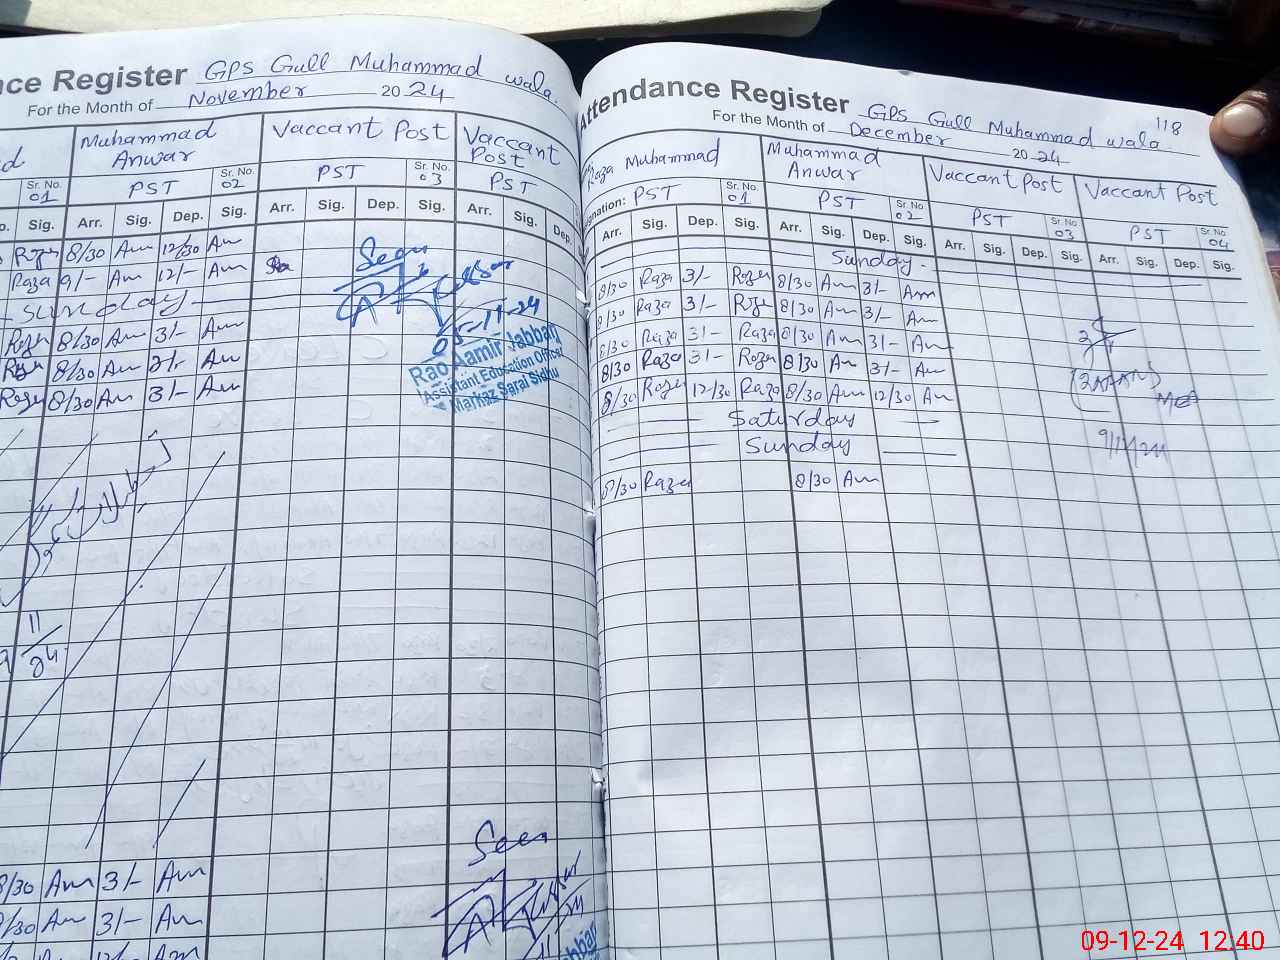 nce Register GPS Gull Muhammad wala.
For the Month of November 2024
Muhammad Anwar Vaccant Post Vaccant Post
Sr. No. 01 PST Sr. No. 02 PST Sr. No. 03 PST
Sig. Arr. Sig. Dep. Sig. Arr. Sig. Dep. Sig. Arr. Sig. Dep.
8/30 Am 12/30 Am
Raza 9/- Am 12/- Am
Sunday
8/30 Am 3/- Am
8/30 Am 3/- Am
8/30 Am 3/- Am
Seen
05-11-24
Rao Aamir Jabbar
Assistant Education Officer
Markaz Sarai Sidhu
11/24
8/30 Am 3/- Am
8/30 Am 3/- Am
Am
Seen
Attendance Register GPS Gull Muhammad wala.
118
For the Month of December 2024
Raza Muhammad Muhammad Anwar Vaccant Post Vaccant Post
PST Sr. No. 01 PST Sr. No. 02 PST Sr. No. 03 PST Sr. No. 04
Arr. Sig. Dep. Sig. Arr. Sig. Dep. Sig. Arr. Sig. Dep. Sig. Arr. Sig. Dep. Sig.
Sunday
8/30 Raza 3/- Raza 8/30 Am 3/- Am
8/30 Raza 3/- Raza 8/30 Am 3/- Am
8/30 Raza 3/- Raza 8/30 Am 3/- Am
8/30 Raza 3/- Raza 8/30 Am 3/- Am
8/30 Raza 12/30 Raza 8/30 Am 12/30 Am
Saturday
Sunday
8/30 Raza 8/30 Am
9/12/24
09-12-24 12:40